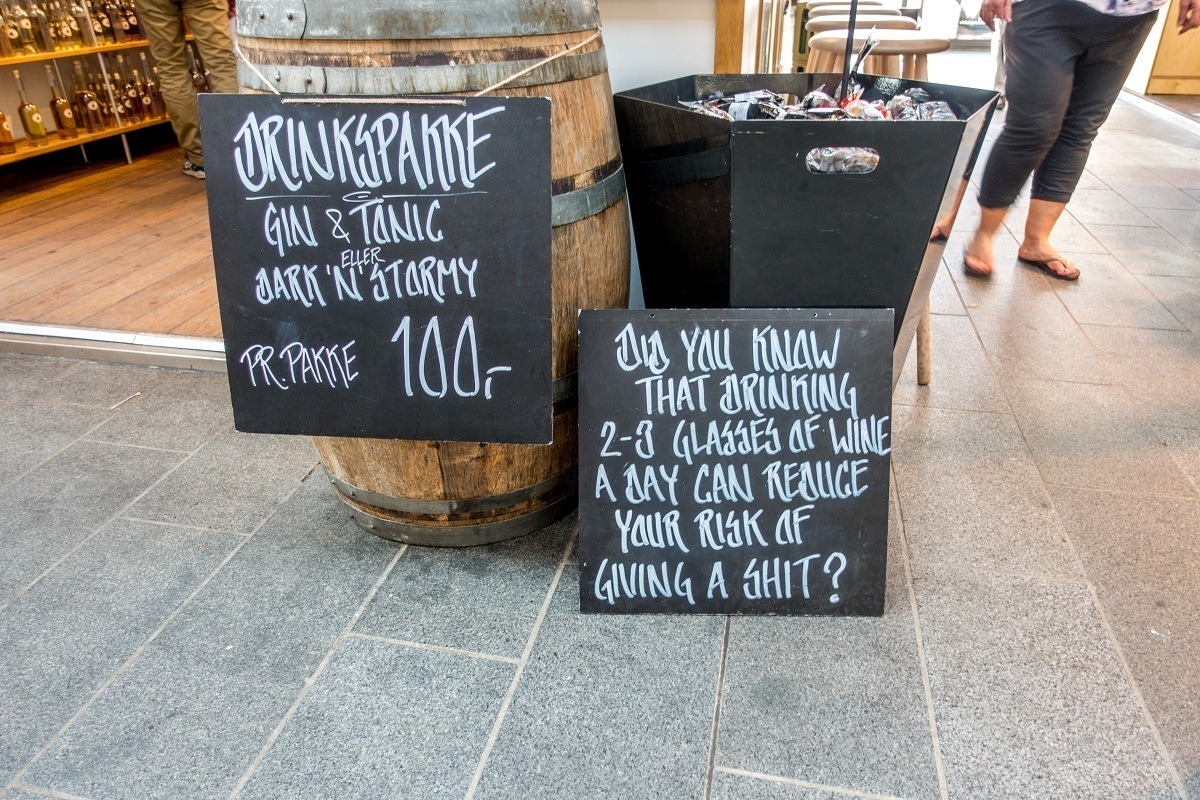 DRINKSPAKKE
GIN & TONIC
ELLER
DARK 'N' STORMY
PR. PAKKE 100,-
DID YOU KNOW
THAT DRINKING
2-3 GLASSES OF WINE
A DAY CAN REDUCE
YOUR RISK OF
GIVING A SHIT?